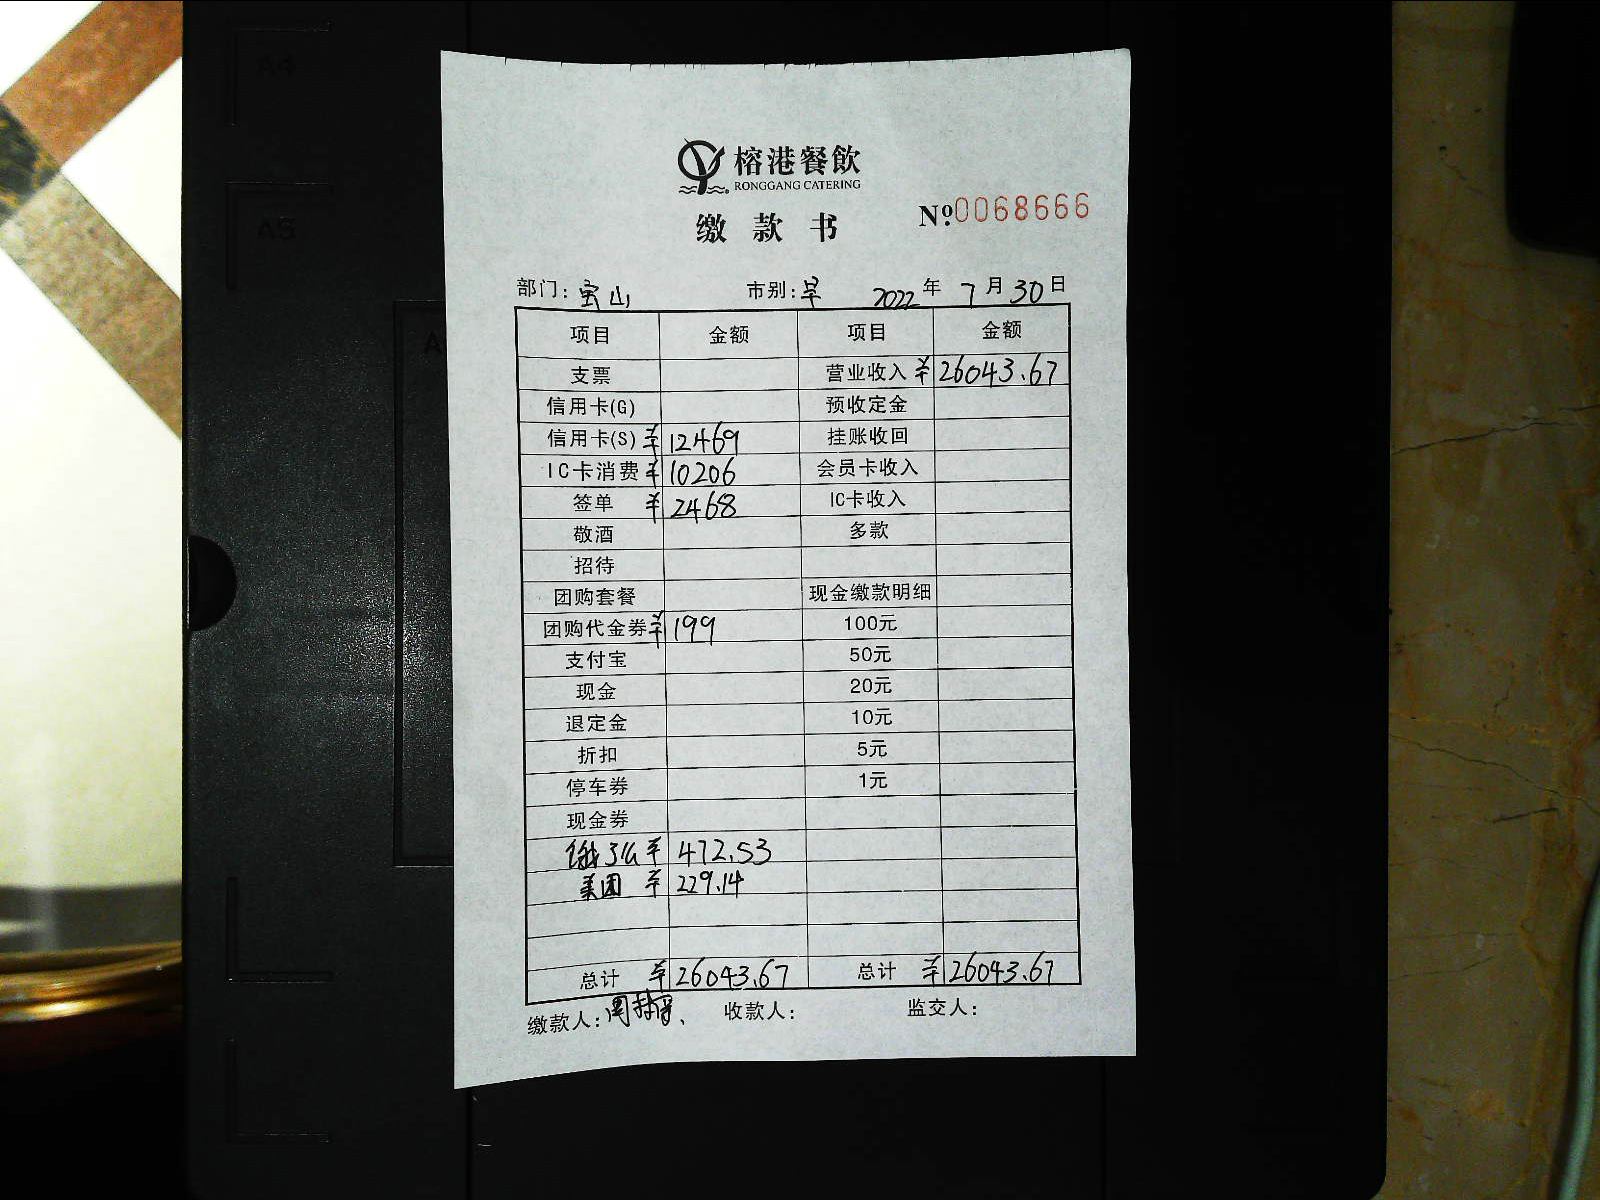 A4
A5
榕港餐飲
RONGGANG CATERING
缴款书
№0068666
部门: 宝山 市别: 早 2022年7月30日
项目 金额 项目 金额
支票 营业收入 ¥26043.67
信用卡(G) 预收定金
信用卡(S) ¥12469 挂账收回
IC卡消费 ¥10206 会员卡收入
签单 ¥2468 IC卡收入
敬酒 多款
招待
团购套餐 现金缴款明细
团购代金券 ¥199 100元
支付宝 50元
现金 20元
退定金 10元
折扣 5元
停车券 1元
现金券
饿了么 ¥472.53
美团 ¥229.14
总计 ¥26043.67 总计 ¥26043.67
缴款人: 周 收款人: 监交人: